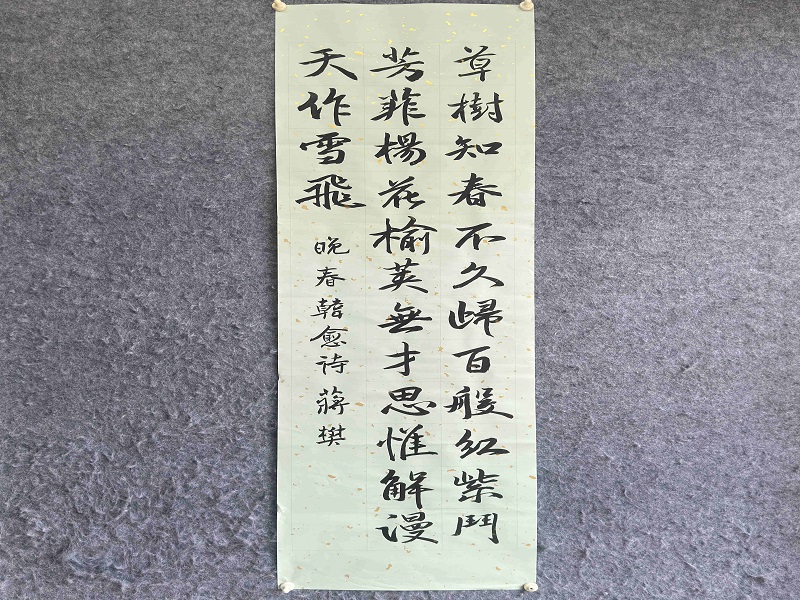 草樹知春不久歸百般紅紫鬥
芳菲楊花榆莢無才思惟解漫
天作雪飛
晚春韓愈诗蔣樊